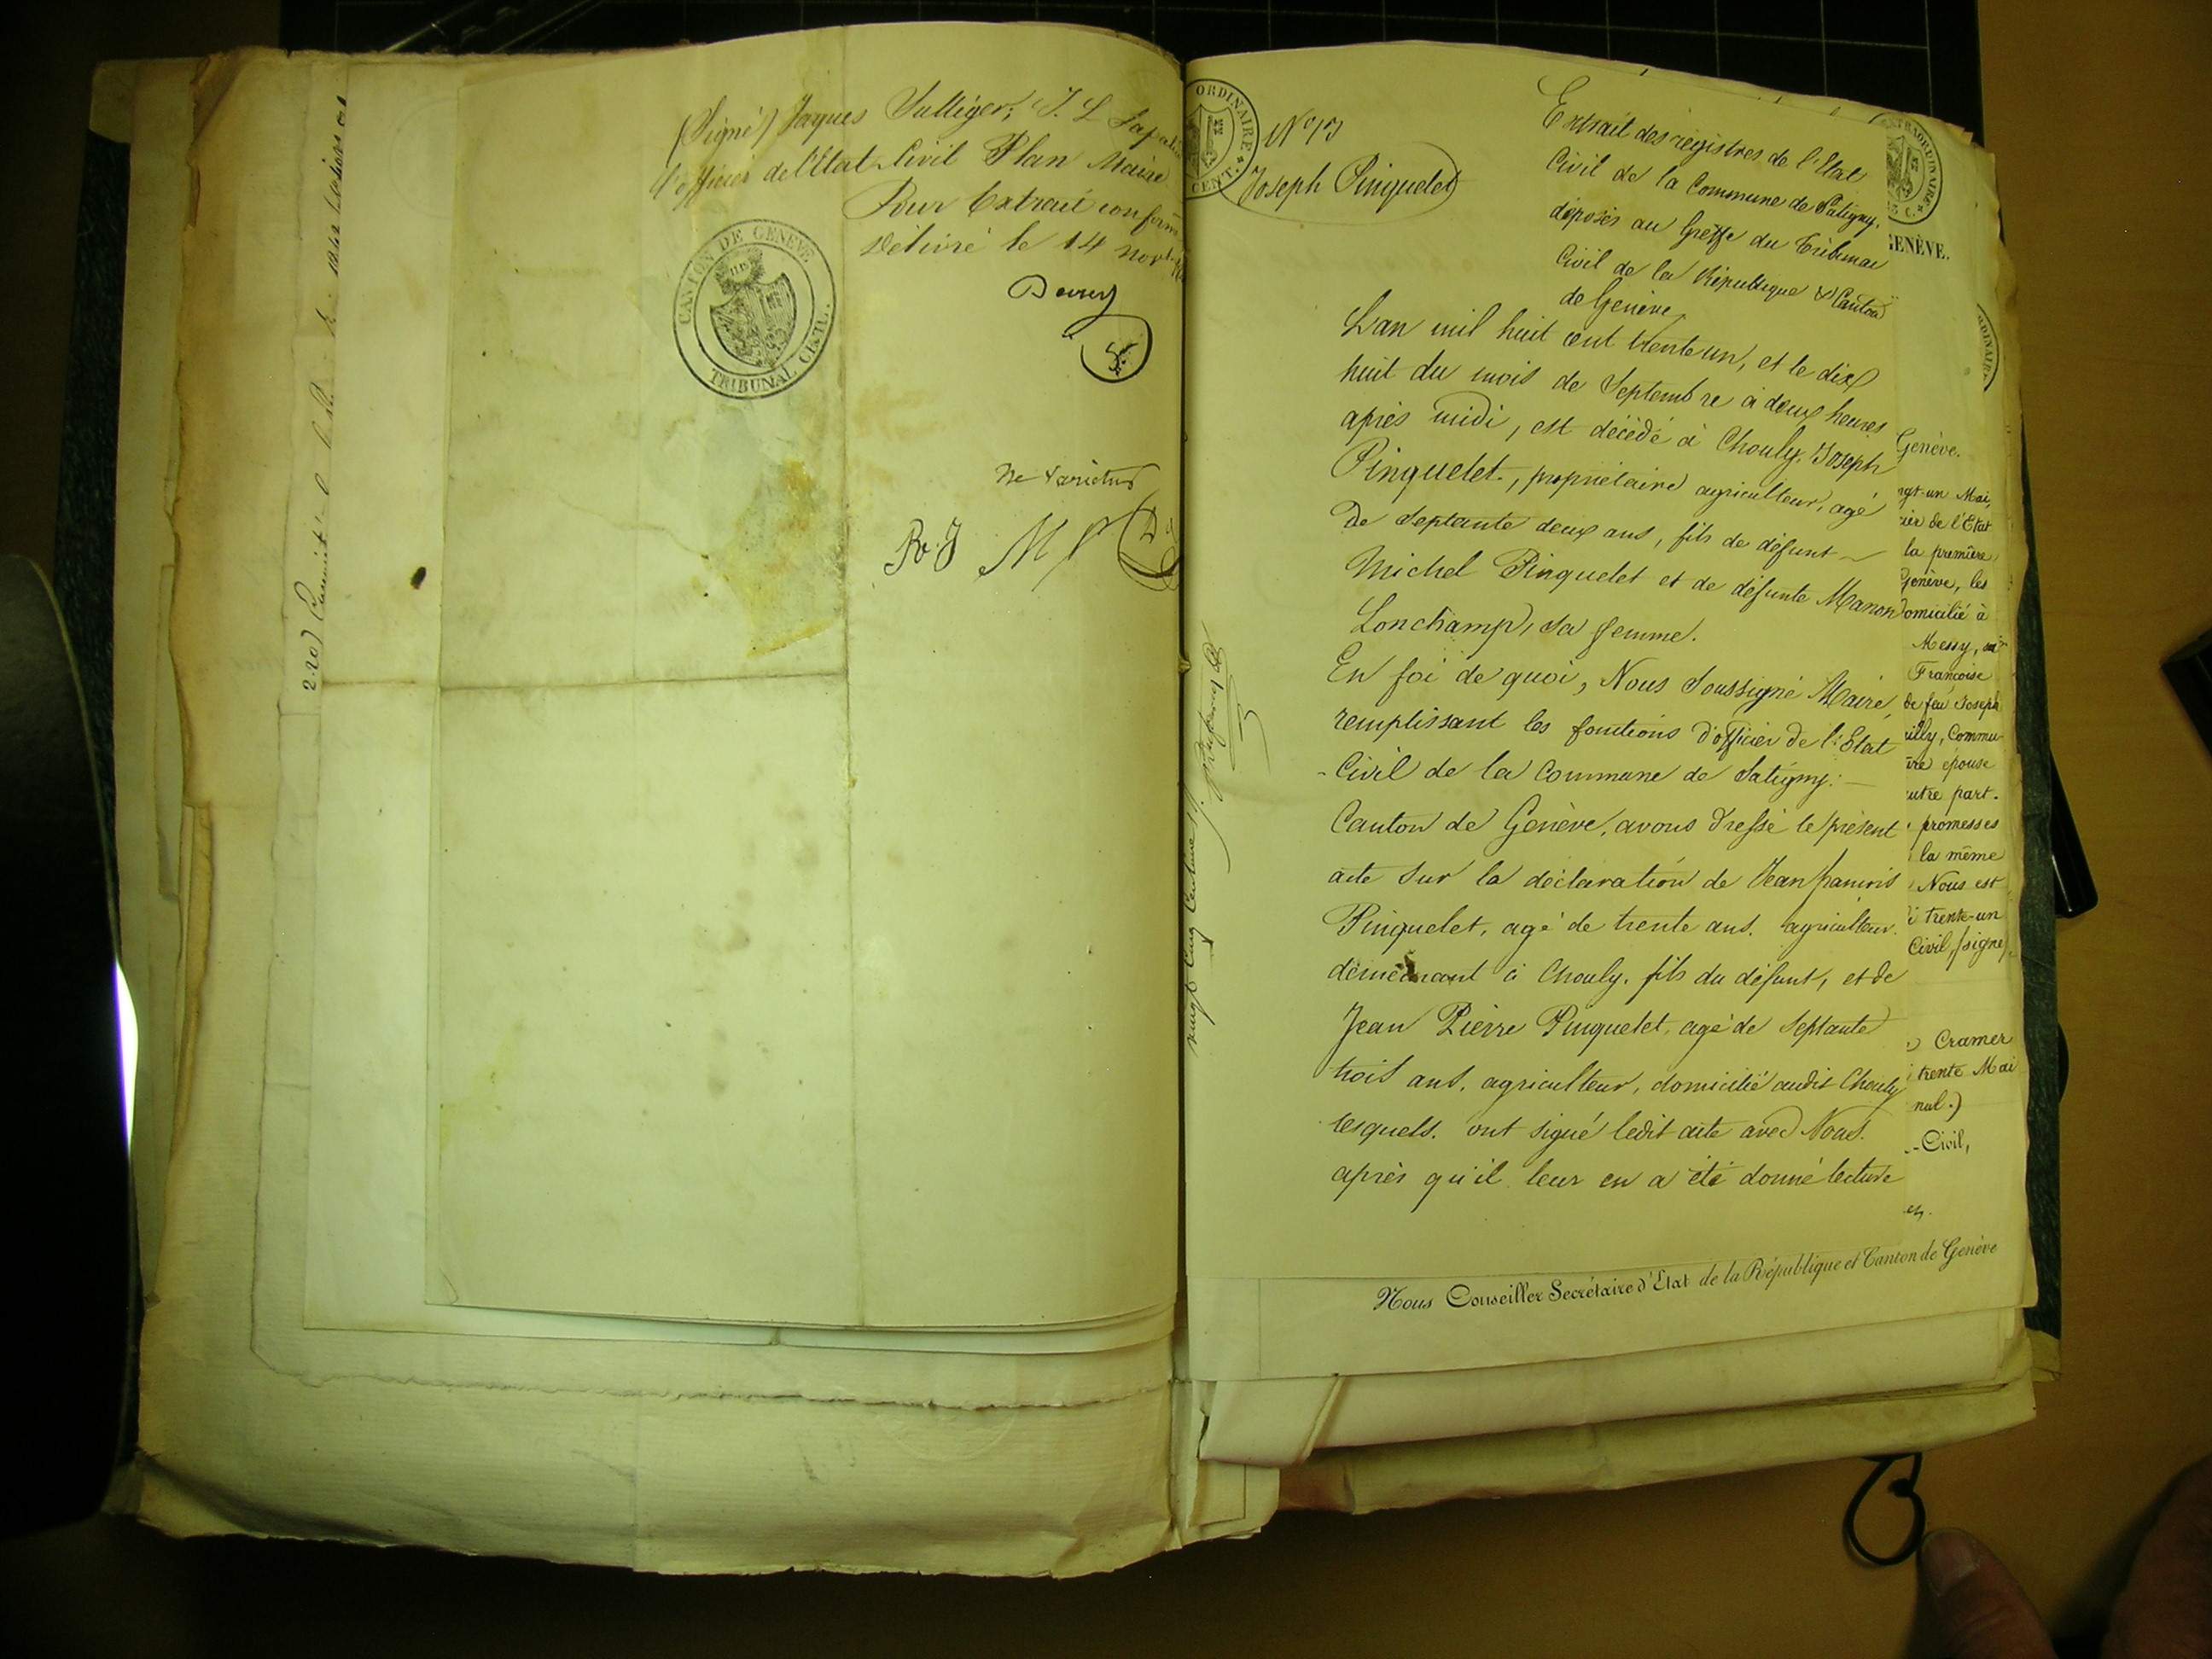 (Signé) Jaques Sulliger; J. L
l'officier de l'Etat Civil Plan Maire
Pour Extrait conforme
Délivré le 14 nov
CANTON DE GENEVE
TRIBUNAL CENTL.
Ne Varietur
2.20
vingt cinq Centimes
ORDINAIRE
CENT.
Joseph Pinquelet
Extrait des régistres de l'Etat
Civil de la Commune de Satigny,
déposés au Greffe du Tribunal
Civil de la République & Canton
de Genève
L'an mil huit cent trente un, et le dix
huit du mois de Septembre à deux heures
après midi, est décédé à Chouly, Joseph
Pinquelet, propriétaire agriculteur, agé
de septante deux ans, fils de défunt
Michel Pinquelet et de défunte Manon
Lonchamp, sa femme.
En foi de quoi, Nous Soussigné Maire,
remplissant les fonctions d'officier de l'Etat
-Civil de la Commune de Satigny:
Canton de Genève, avons dressé le présent
acte sur la déclaration de Jean françois
Pinquelet, agé de trente ans, agriculteur.
demeurant à Chouly, fils du défunt, et de
Jean Pierre Pinquelet, agé de septante
trois ans, agriculteur, domicilié audit Chouly
lesquels. ont signé ledit acte avec Nous.
après qu'il leur en a été donné lecture
Nous Conseiller Secrétaire d'Etat de la République et Canton de Genève
TRAORDINAIRE
ENÈVE.
Genève.
ngt-un Mai,
cier de l'Etat
la première
Genève, les
omicilié à
Messy,
Françoise
de feu Joseph
illy, Commu
épouse
utre part.
promesses
la même
Nous est
trente-un
Civil, (signé)
Cramer
trente Mai
nal.)
-Civil,